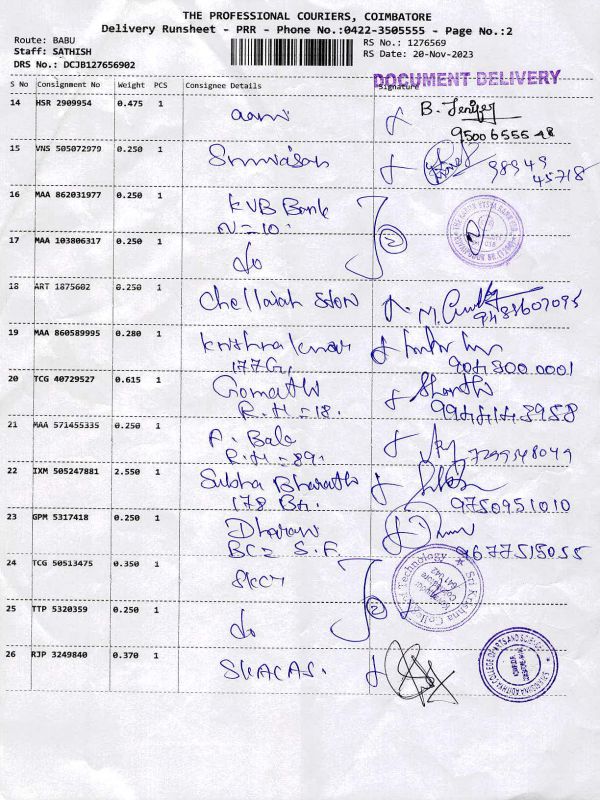 THE PROFESSIONAL COURIERS, COIMBATORE
Delivery Runsheet - PRR - Phone No.:0422-3505555 - Page No.:2
Route: BABU
Staff: SATHISH
DRS No.: DCJB127656902
RS No.: 1276569
RS Date: 20-Nov-2023
DOCUMENT DELIVERY
S No Consignment No Weight PCS Consignee Details Signature
14 HSR 2909954 0.475 1 B. Jenifer
95006555 48
15 VNS 505072979 0.250 1 Srinivasan 98949
45718
16 MAA 862031977 0.250 1 KVB Bank
N=10.
17 MAA 103806317 0.250 1 do 2
18 ART 1875602 0.250 1 Chellaiah Store
9487607095
19 MAA 860589995 0.280 1 Krishnakumar
177G,
20 TCG 40729527 0.615 1 Gomathi Shanthi
R.H=18.
21 MAA 571455335 0.250 1 A. Bala
R.H=89. 7299548049
22 IXM 505247881 2.550 1 Subha Bharathi
178 9750951010
23 GPM 5317418 0.250 1
BC2 S.F. 9677515055
24 TCG 50513475 0.350 1 SKCT
Sri Krishna College of Technology
Coimbatore
641 042
25 TTP 5320359 0.250 1 do 2
26 RJP 3249840 0.370 1 SKACAS.